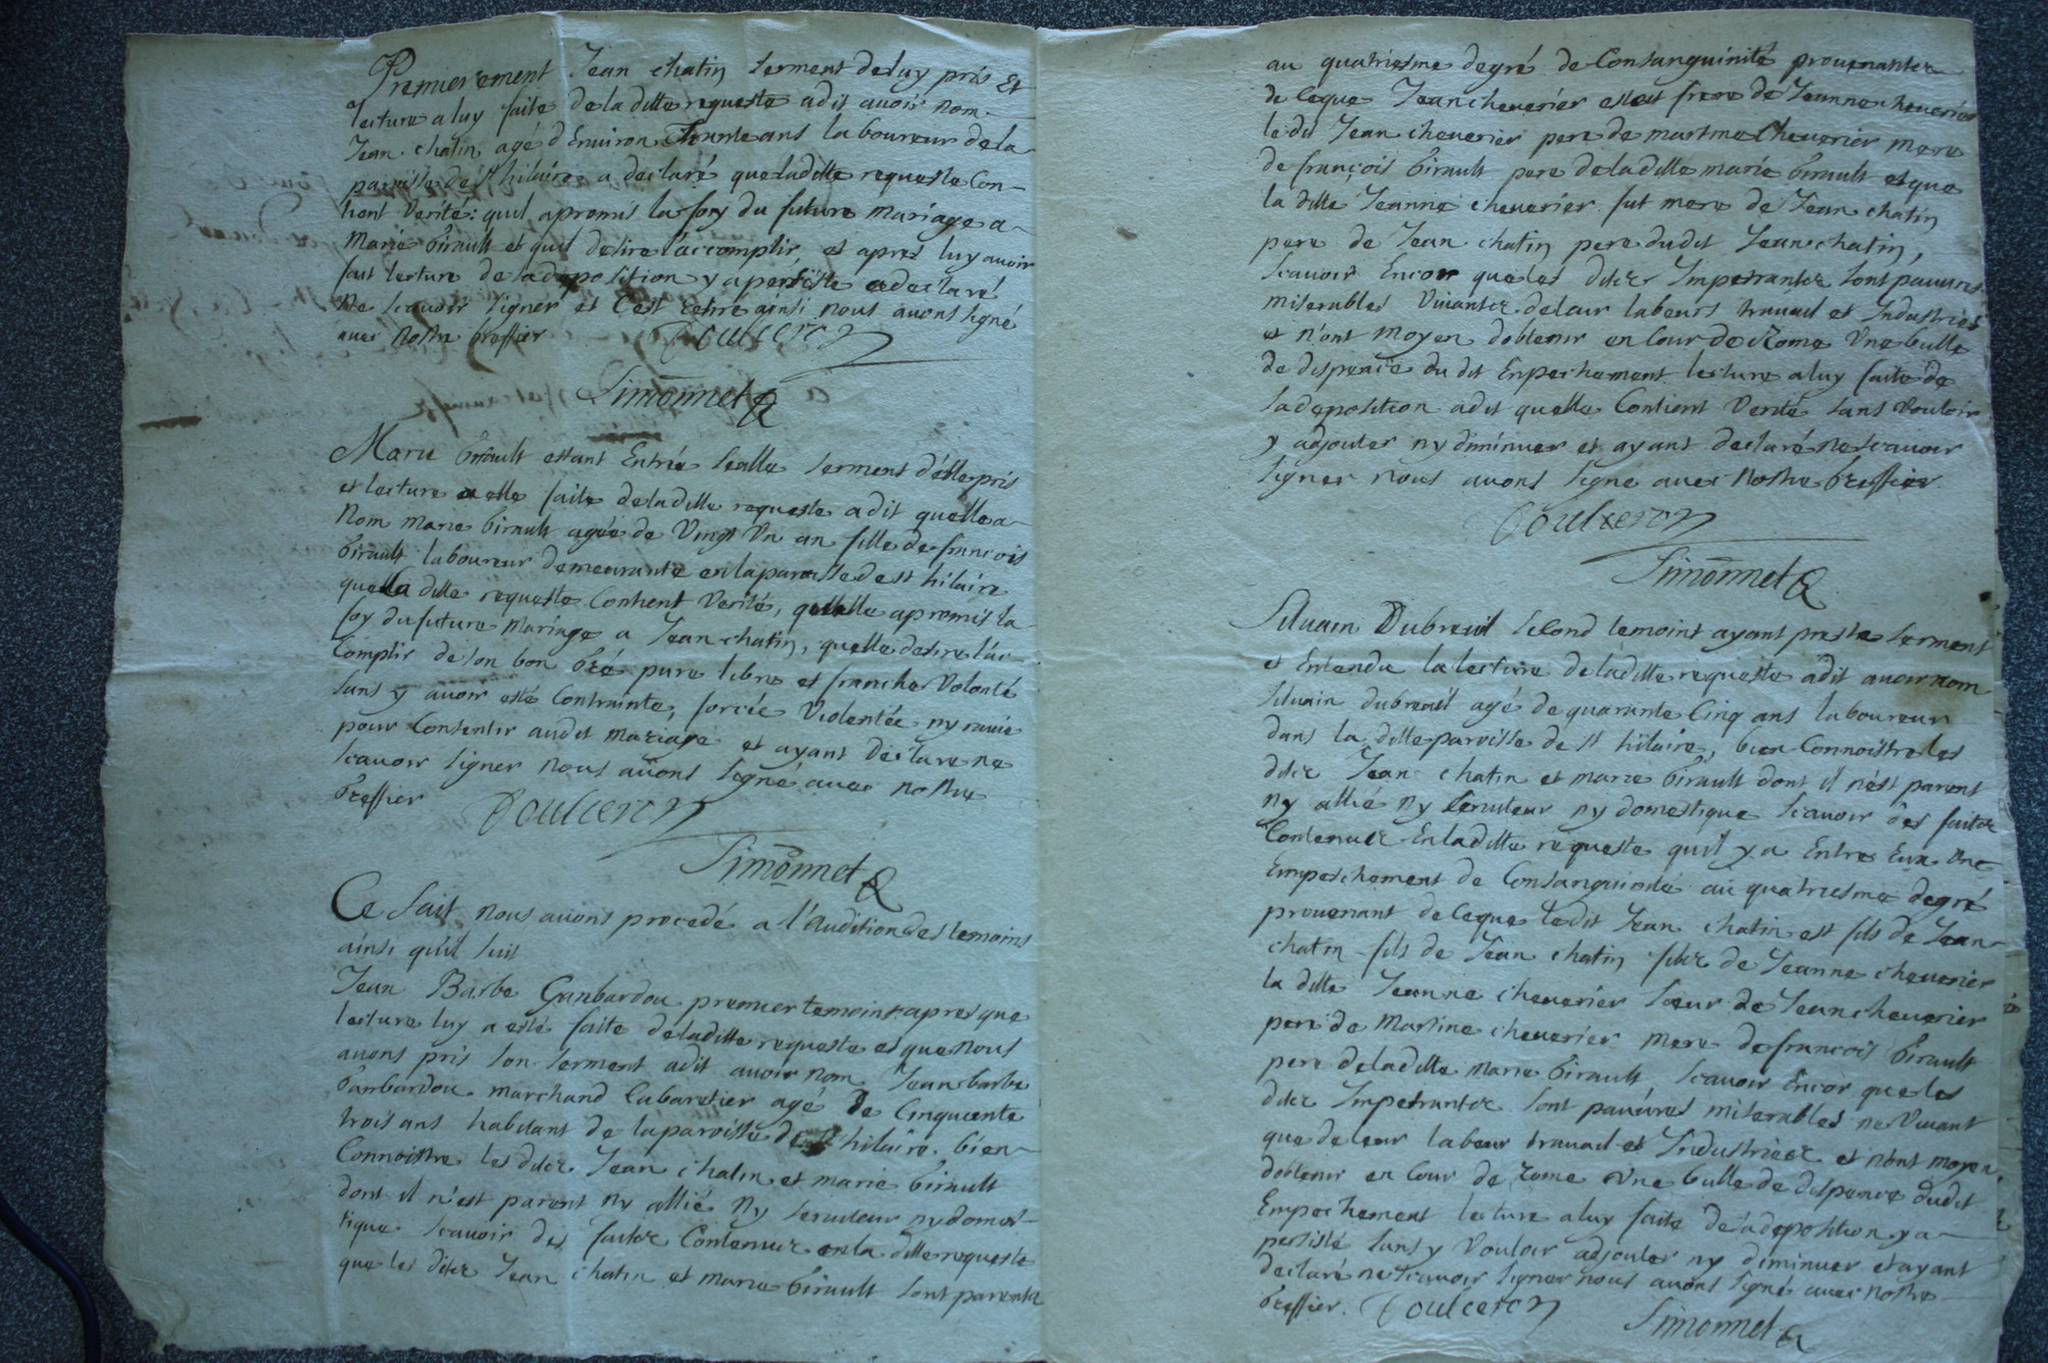 Premierement Jean chatin serment deluy pris Et
lecture aluy faite de la ditte requeste adit avoir nom
Jean chatin agé d'Environ Trente ans laboureur de la
paroisse de st hilaire a declaré que laditte requeste Con-
tient verité: quil apromis la foy du future mariage a
Marie Girault et quil desire l'accomplir et apres luy avoir
fait lecture de sa deposition y a persisté adeclaré
ne scavoir signer et C'est retiré ainsi nous avons signé
avec nostre Greffier Doulceron
Simonnet
Marie Girault estant Entrée Sealle serment d'elle pris
et lecture a elle faite de laditte requeste adit quelle a
nom marie Girault agée de Vingt Un an fille de francois
Girault laboureur demeurante en la paroisse de st hilaire
que la ditte requeste Contient Verité, quelle apromis la
foy du future Mariage a Jean chatin, quelle desire l'ac-
complir de son bon Gré pure libre et franche Volonté
sans y avoir esté Contrainte, forcée Violentée ny ravie
pour Consentir audit mariage et ayant declare ne
scavoir signer nous avons signé avec nostre
Greffier Doulceron
Simonnet
Ce fait nous avons procedé a l'Audition des temoins
ainsi qu'il suit
Jean Barbe Ganbardou premier temoins apres que
lecture luy a esté faite de laditte requeste et que nous
avons pris son serment adit avoir nom Jean barbe
Ganbardou marchand Cabaretier agé de Cinquente
trois ans habitant de la paroisse de st hilaire, bien
Connoistre les dits Jean chatin et marie Girault
dont il n'est parent ny allié ny serviteur ny domes-
tique scavoir des faits Contenus en la ditte requeste
que les dits Jean chatin et marie Girault sont parents
au quatriesme degré de Consanguinité provenants
de Ceque Jean cheverier estoit frere de Jeanne cheverier
le dit Jean cheverier pere de martine Cheverier mere
de françois Girault pere de la ditte marie Girault et que
la ditte Jeanne cheverier fut mere de Jean chatin
pere de Jean chatin pere dudit Jean chatin,
scavoir Encor que les dits Impetrants sont pauvres
miserables vivants de leur labeurs travail et Industries
et n'ont moyen dobtenir en Cour de Rome Une bulle
de dispence du dit Enpechement lecture aluy faite de
sa deposition adit quelle Contient Verité sans vouloir
y adjouter ny diminuer et ayant declaré ne scavoir
signer nous avons signe avec nostre Greffier
Doulceron
Simonnet
Silvain Dubreuil second temoins ayant preste serment
et Entendu la lecture de laditte requeste adit avoir nom
Silvain dubreuil agé de quarante Cinq ans laboureur
dans la ditte paroisse de st hilaire, bien Connoistre les
dits Jean chatin et marie Girault dont il n'est parent
ny allié ny serviteur ny domestique scavoir des faits
Contenus En laditte requeste quil y a Entre Eux Une
Empeschement de Consanguinité au quatriesme degré
provenant de Ceque ledit Jean chatin est fils de Jean
chatin fils de Jean chatin fils de Jeanne cheverier
la ditte Jeanne cheverier soeur de Jean cheverier
pere de Martine cheverier mere de françois Girault
pere de laditte marie Girault, scavoir Encor que les
dits Impetrants sont pauvres miserables ne vivant
que de leur labeur travail et Industries et n'ont moyen
dobtenir en Cour de rome Une bulle de dispence dudit
Empechement lecture aluy faite de sa deposition y a
persisté sans y Vouloir adjouter ny diminuer et ayant
declaré ne scavoir signer nous avons signé avec nostre
Greffier. Doulceron Simonnet